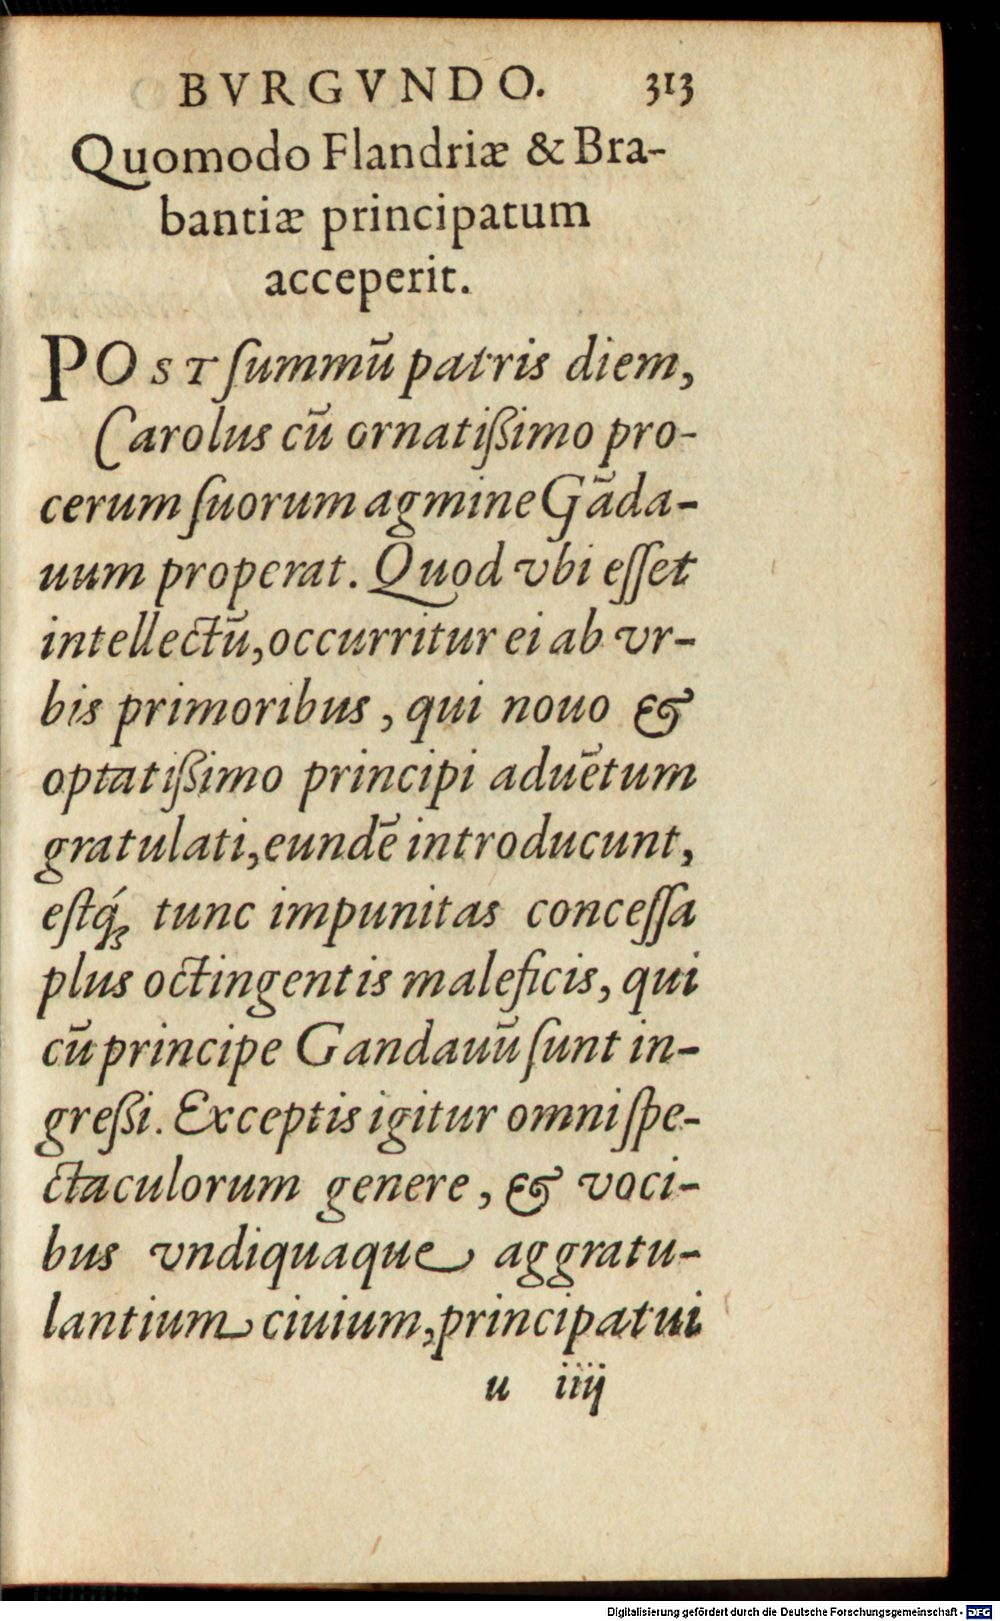 BVRGVNDO. 313
Quomodo Flandriæ & Bra-
bantiæ principatum
acceperit.
POST ſummũ patris diem,
Carolus cũ ornatißimo pro-
cerum ſuorum agmine Gãda-
uum properat. Quod vbi eſſet
intellectũ, occurritur ei ab vr-
bis primoribus, qui nouo &
optatißimo principi aduẽtum
gratulati, eundẽ introducunt,
eſtq́; tunc impunitas conceſſa
plus octingentis maleficis, qui
cũ principe Gandauũ ſunt in-
greßi. Exceptis igitur omni ſpe-
ctaculorum genere, & voci-
bus vndiquaque aggratu-
lantium ciuium, principatui
u iiij
Digitalisierung gefördert durch die Deutsche Forschungsgemeinschaft - DFG